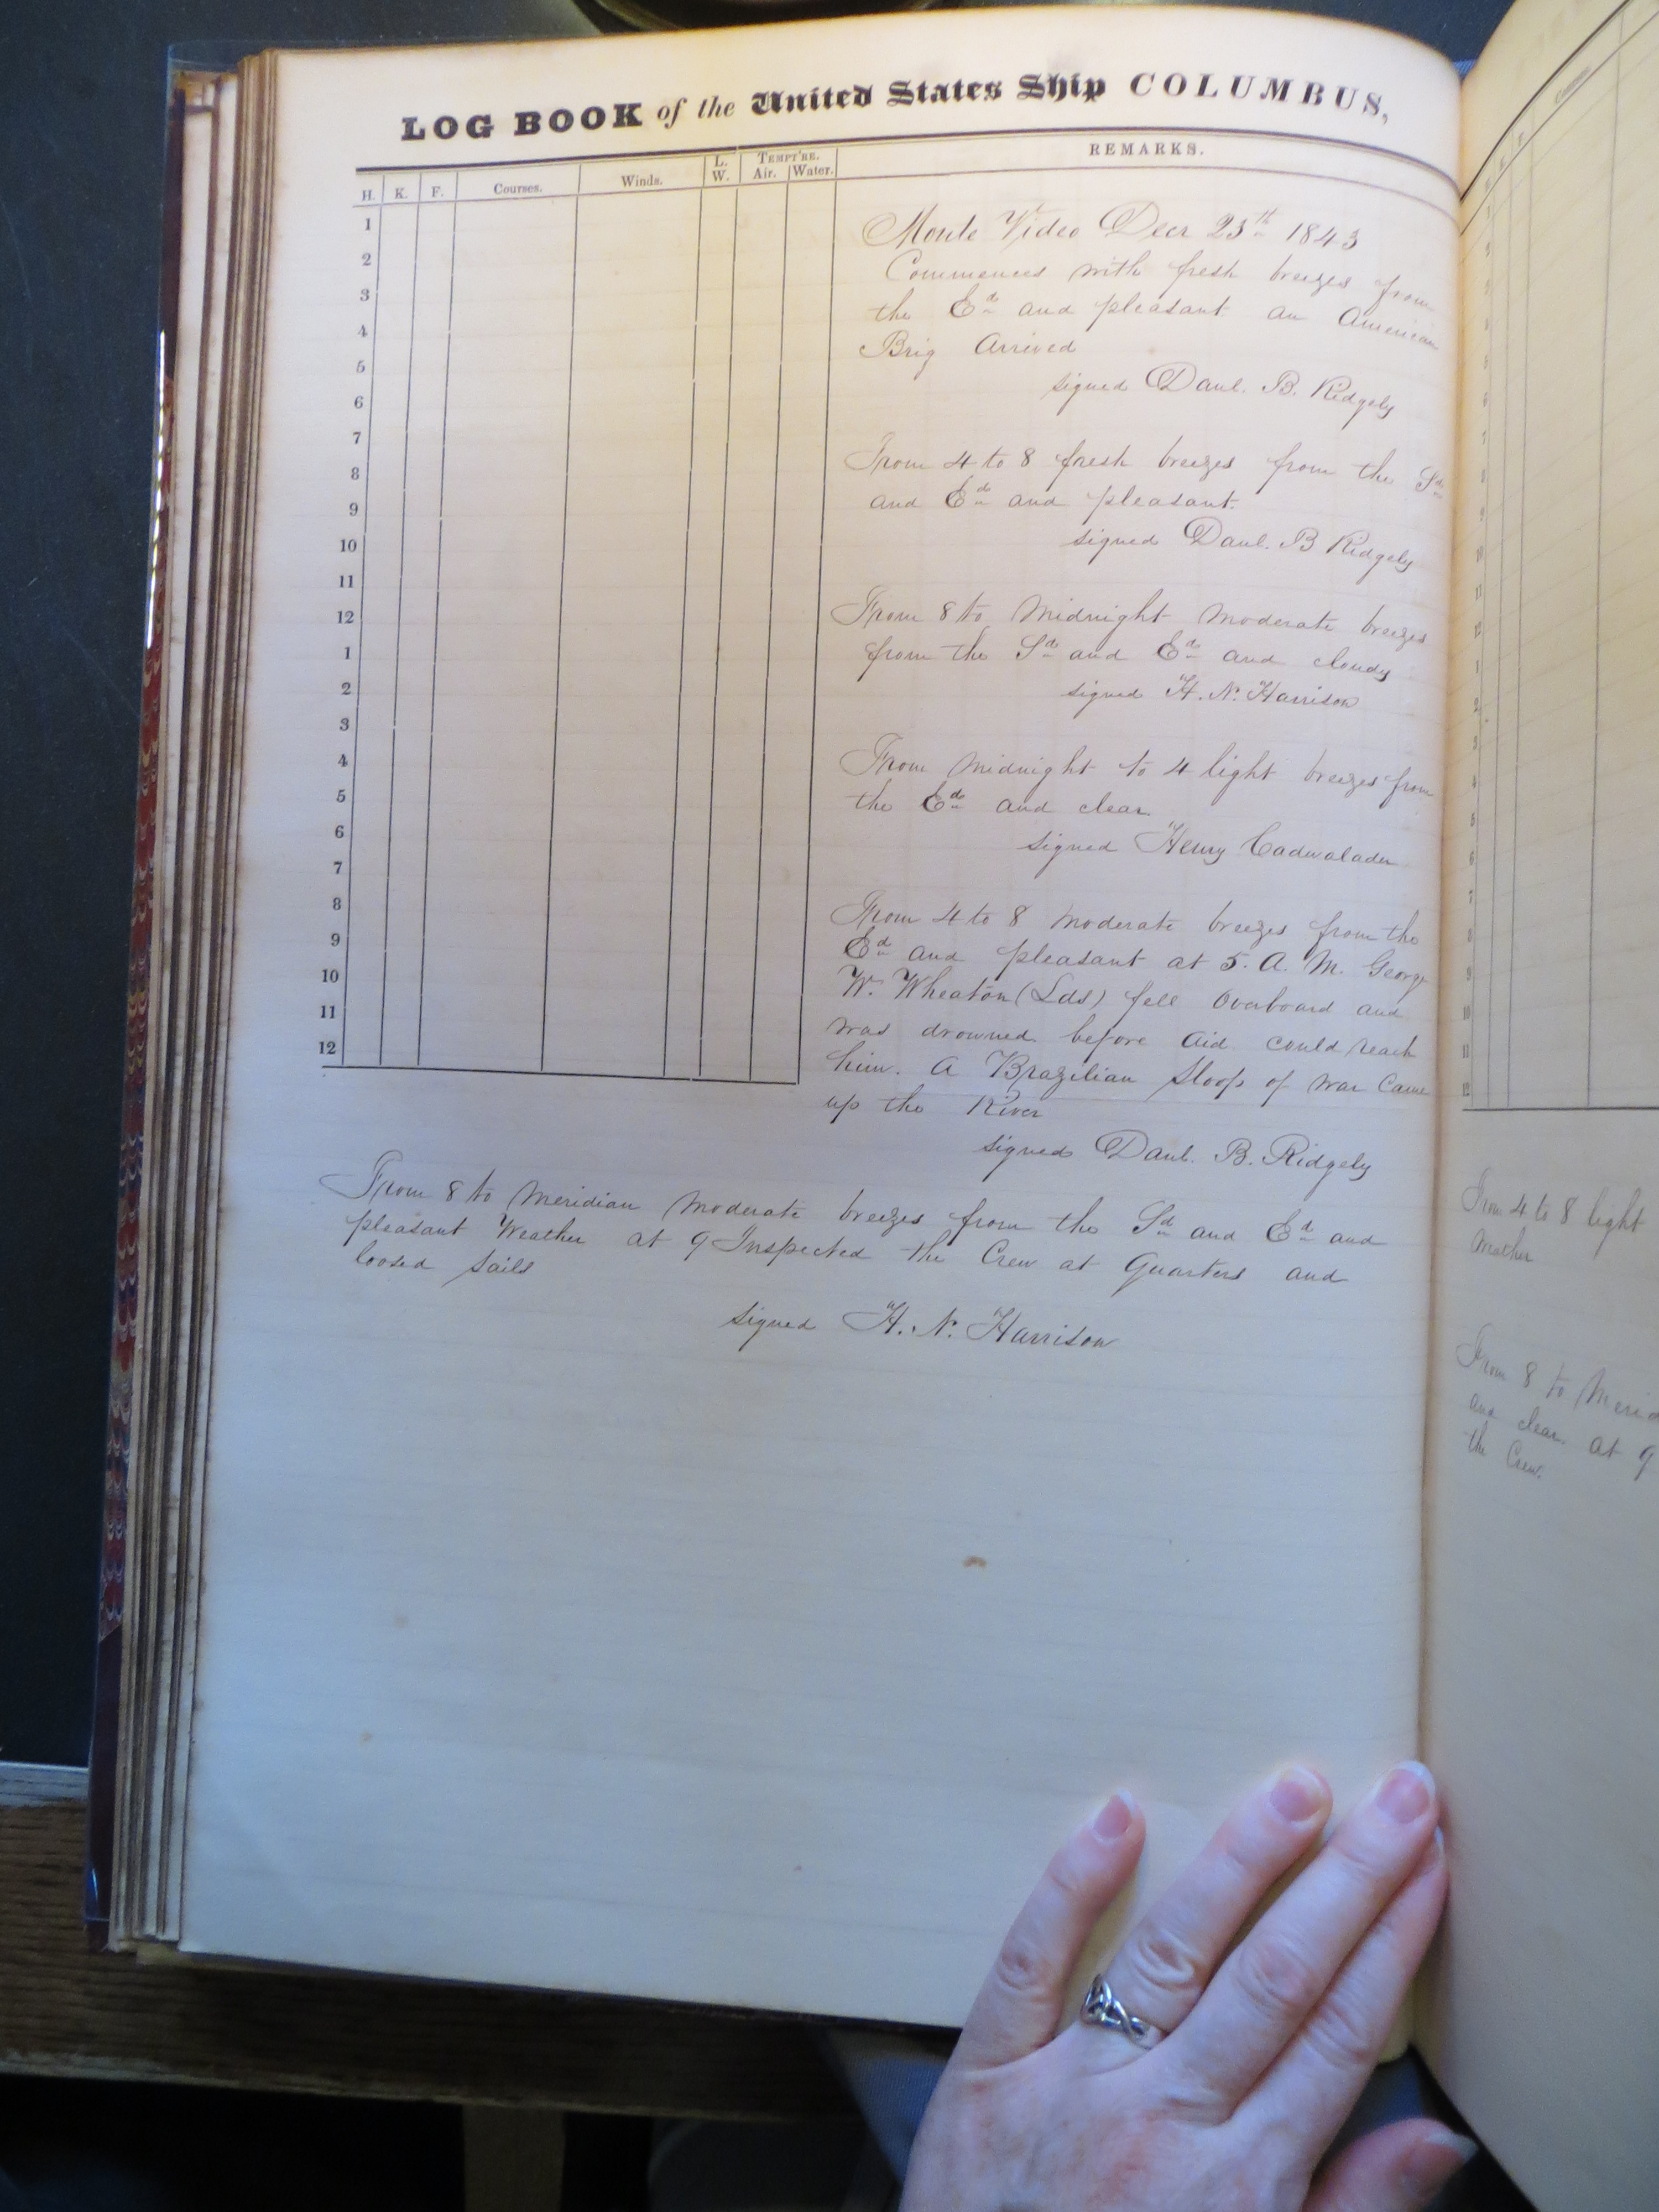 LOG BOOK of the United States Ship COLUMBUS,
H. K. F. Courses. Winds. L. W. TEMPT'RE. Air. Water. REMARKS.
1
2
3
4
5
6
7
8
9
10
11
12
1
2
3
4
5
6
7
8
9
10
11
12
Monte Video Decr 23th 1843
Commences with fresh breezes from
the Ed and pleasant an American
Brig Arrived
signed Danl. B. Ridgely
From 4 to 8 fresh breezes from the Sd
and Ed and pleasant.
signed Danl. B Ridgely
From 8 to Midnight moderate breezes
from the Sd and Ed and cloudy
signed H. N. Harrison
From Midnight to 4 light breezes from
the Ed and clear.
signed Henry Cadwalader
From 4 to 8 moderate breezes from the
Ed and pleasant at 5. A. M. George
W. Wheaton (Lds) fell Overboard and
was drowned before Aid could reach
him. A Brazilian Sloop of War Came
up the River
signed Danl. B. Ridgely
From 8 to Meridian Moderate breezes from the Sd and Ed and
pleasant Weather at 9 Inspected the Crew at Quarters and
loosed Sails
signed H. N. Harrison
From 4 to 8 light
weather
From 8 to Merid
and clear. at 9
the Crew.